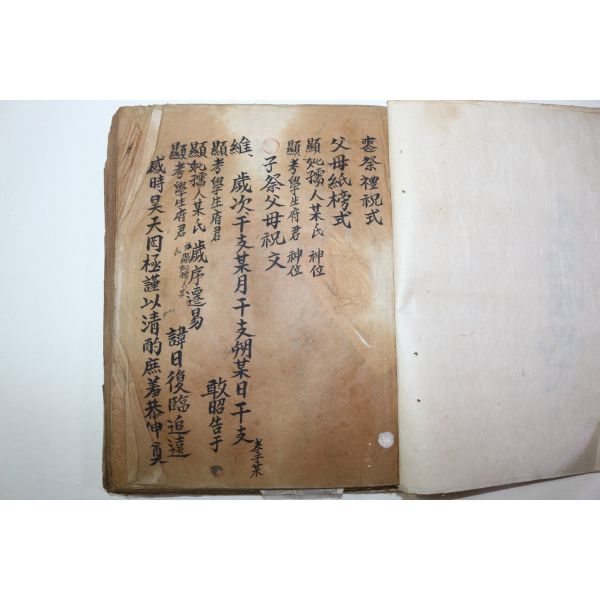 喪祭禮祝式
父母紙榜式
顯妣孺人某氏 神位
顯考學生府君 神位
子祭父母祝文
維、歲次干支某月干支朔某日干支 孝子某
顯考學生府君 敢昭告于
顯妣孺人某氏 歲序遷易
顯考學生府君 諱日復臨追遠
感時昊天罔極謹以清酌庶羞恭伸奠